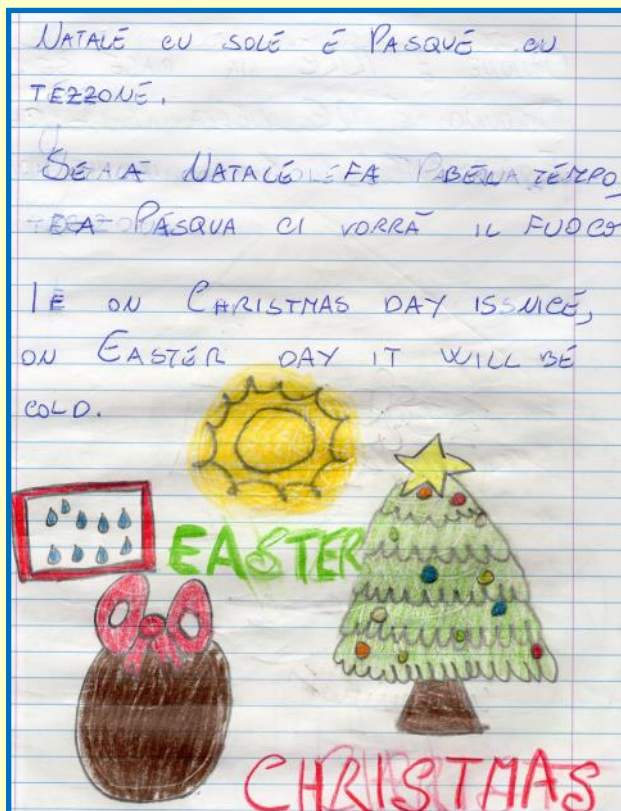 NATALE CU SOLE E PASQUE CU
TEZZONE.
SE A NATALE FA BEL TEMPO,
A PASQUA CI VORRÀ IL FUOCO
IF ON CHRISTMAS DAY IS NICE,
ON EASTER DAY IT WILL BE
COLD.
EASTER
CHRISTMAS